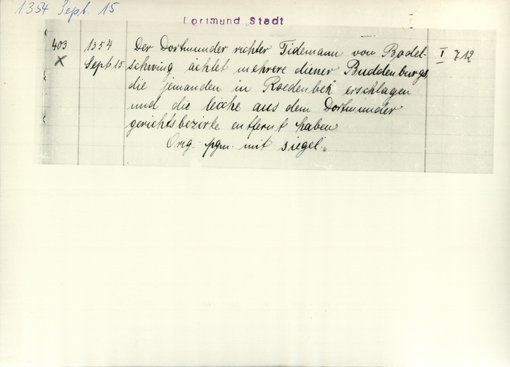 1354 Sept. 15
Dortmund Stadt
403 1354 Der Dortmunder richter Tidemann von Bodel- I 712
x Sept. 15 schwing ächtet mehrere diener Buddenburgs
die jemanden in Roedenbek erschlagen
und die leiche aus dem Dortmunder
gerichtsbezirke entfernt haben
Orig. pgm. mit siegel.